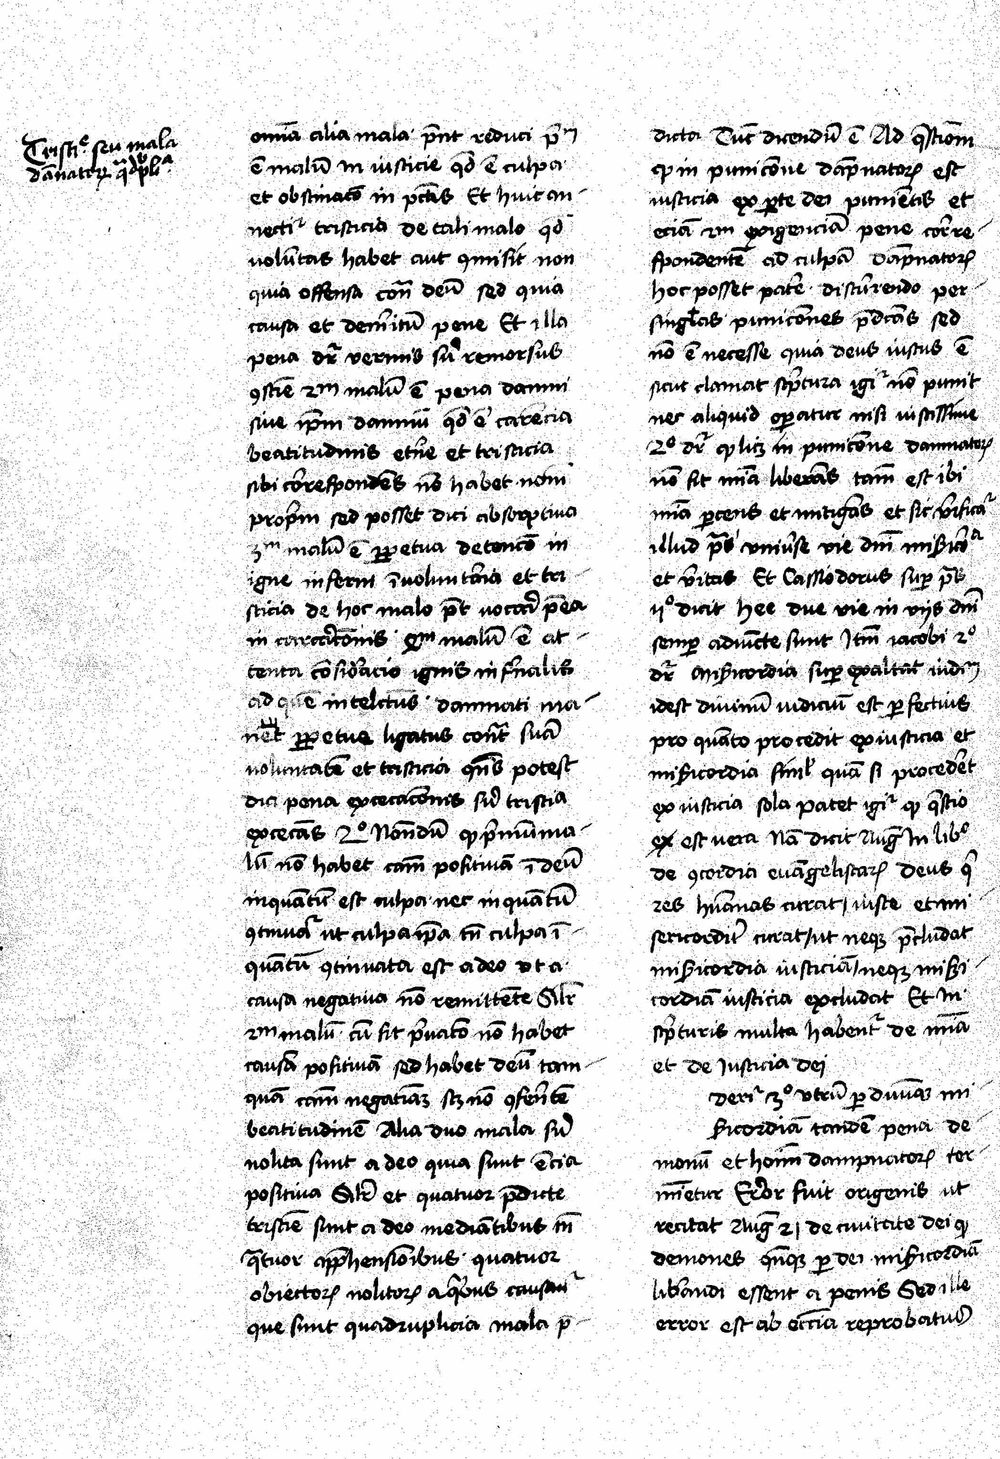 Tristicie seu mala
dānatorum quadrupl
omīa alia mala pn̄t reduci pri
ē malū in iusticie qd̄ ē culpa
et obstinacō in pctīs Et huic an-
nectit tristicia de tali malo qd̄
volūtas habet aut 9misit non
quia offensa con̄ deū sed quia
causa et demitū pene Et illa
pena dr̄ vermis siū remorsus
9sciē 2m malū ē pena damni
siue ipm damnū qd̄ ē carēcia
beatitudinis etne et tristicia
sibi correspondēs nō habet nom
proprm sed posset dici absorptiua
3m malū ē ppetua detencō in
igne inferni īvoluntāria et tri-
sticia de hoc malo pt vocari pena
in carcacōnis Qm malū ē at-
tenta cōsidacio ignis infnalis
ad quē intelctus damnati ma-
net ppetue ligatus cont suā
voluntatē et tristicia potest
dici pena excecacōnis siū tristia
excecās 2o Nondū qp primū ma-
lū nō habet cam positiuā ī deū
inquantū est culpa nec inquantū
9tinuat ut culpa ipa tn̄ culpa ī-
quantū 9tinuata est a deo vt a
causa negatiua nō remittente Silr
2m malū cū sit pruacō nō habet
causā positiuā sed habet deū tam-
quā cam negatiuā scz nō 9ferētē
beatitudinē Alia duo mala siū
nolita sunt a deo quia sunt ēcia
positiua Silr et quatuor pdicte
tristicē sunt a deo mediātibus in
qtuor apphensionibus quatuor
obiectorum nolitorum a qbus causant
que sunt quadruplicia mala p-
dicta Tūc dicendū ē Ad qstiom
qp in punicōne dapnatorum est
iusticia ex pte dei puniētis et
eciā 2m exigenciā pene corre-
spondentē ad culpā dapnatorum
hoc posset patē discurrendo per
singlas punicōnes pdcās sed
nō ē necesse quia deus iustus ē
sicut clamat scptura igit nō punit
nec aliquid opatur nisi iustissime
2o dr̄ qp licz in punicōne damnatorum
nō sit mīa liberās tam est ibi
mīa pcens et mitigās et sic vificat
illud ps vniuse vie dnī misicoa
et vitas Et Cassiodorus sup ps
dicit hee due vie in viis dnī
semp adiūcte sunt Itm iacobi 2o
dr̄ misicordia sup exaltat iudm
idest diuinū iudiciū est pfectius
pro quāto procedit ex iusticia et
misicordia siml quā si procedet
ex iusticia sola patet igit qp qstio
est vera Nā dicit Aug In libo
de 9cordia euāgelistarum Deus q
res hūanas curat iuste et mi-
sericordit curat ut neqz pcludat
misicordia iusticiā neqz misi-
cordiā iusticia excludat Et In
scpturis multa habent de mīa
et de Iusticia dei
derit 3o vtrū p diuinā mi-
sicordiā tandē pena de-
monū et homī dampnatorum ter-
mīetur Error fuit origenis ut
recitat Aug 21 de ciuitate dei qp
demones qnqz p dei misicordiā
libandi essent a penis Sed ille
error est ab eccīa reprobatus